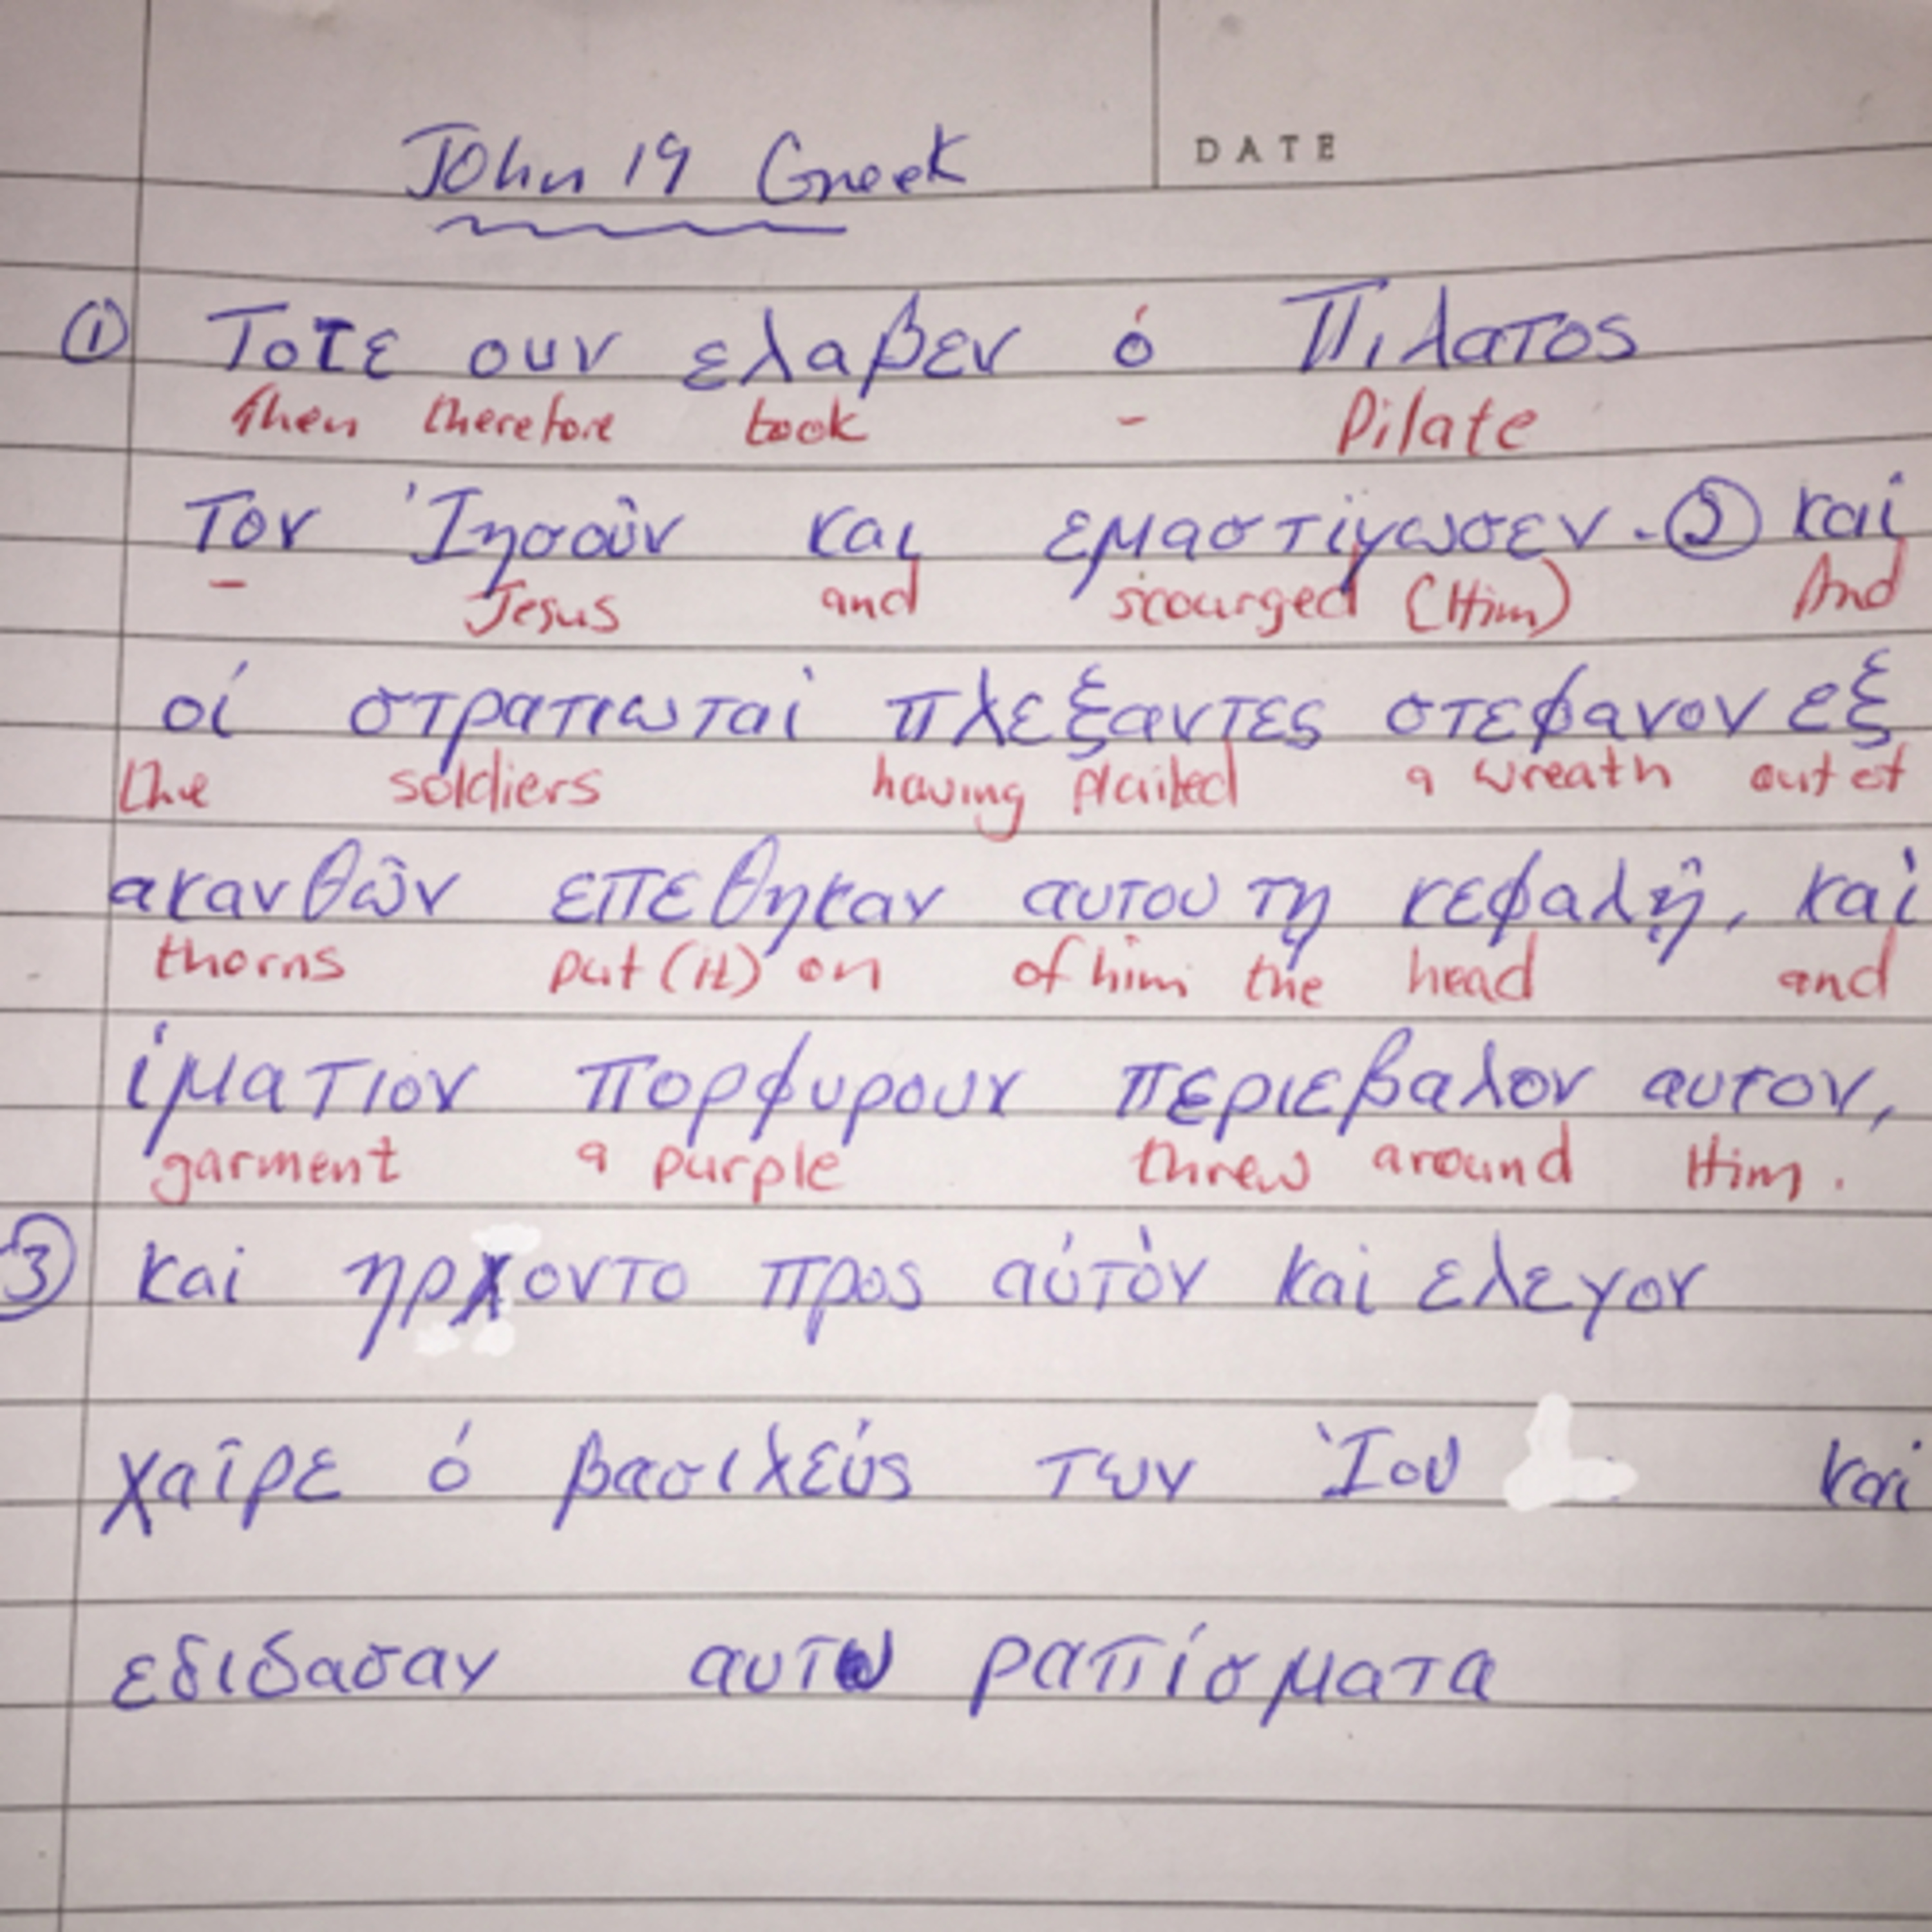 John 19 Greek
DATE
① Τοτε ουν ελαβεν ὁ Πιλατος
then therefore took - Pilate
Τον Ἰησοῦν και εμαστίγωσεν. ② καί
- Jesus and scourged (Him) And
οἱ στρατιωταὶ πλεξαντες στεφανον εξ
the soldiers having plaited a wreath out of
ακανθῶν επεθηκαν αυτου τῃ κεφαλῇ, καὶ
thorns put (it) on of him the head and
ἱματιον πορφυρουν περιεβαλον αυτον,
garment a purple threw around Him.
③ καί ηρχοντο προς αὐτὸν καί ελεγον
χαῖρε ὁ βασιλεύς των Ἰου καί
εδιδασαν αυτω ραπίσματα